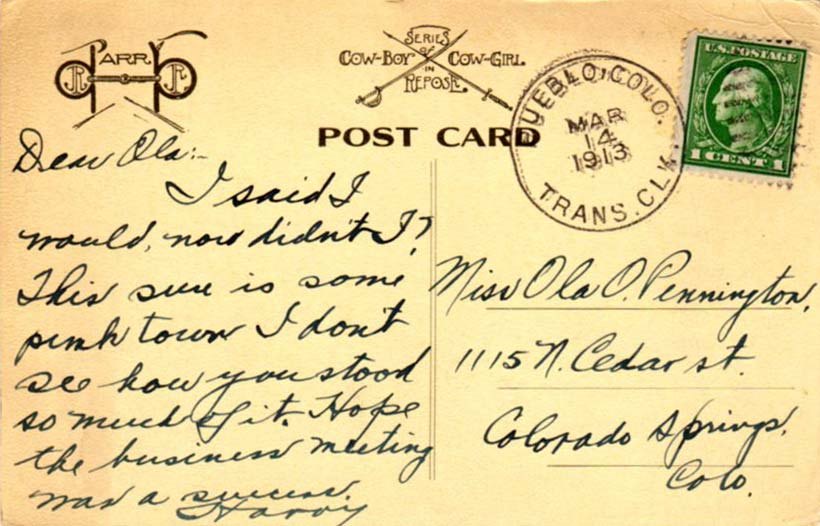 PARRY
SERIES
OF
COW-BOY COW-GIRL
IN
REPOSE.
POST CARD
PUEBLO, COLO.
MAR
14
1913
TRANS. CLK.
U.S. POSTAGE
1 CENT 1
Dear Ola:-
I said I
would, now didn't I?
This sure is some
punk town I don't
see how you stood
so much of it. Hope
the business meeting
was a success.
Harry
Miss Ola O. Pennington,
1115 N. Cedar st.
Colorado Springs,
Colo.